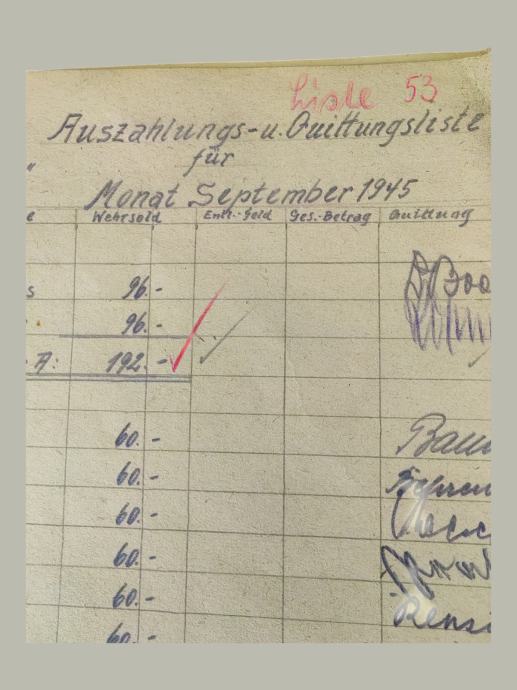 Liste 53
Auszahlungs-u. Quittungsliste
für
Monat September 1945
e Wehrsold Entl.-Geld Ges.-Betrag Quittung
s 96.-
96.-
A: 192.-
60.-
60.-
60.-
60.-
60.-
60.-